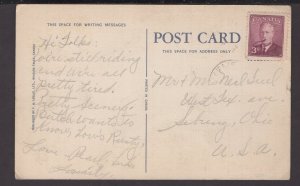 THIS SPACE FOR WRITING MESSAGES
Hi Folks:
are still riding
and are all
Pretty tired.
Pretty Scenery.
Butch wants to
know, how's Rusty,
Love Pearl
POST CARD
THIS SPACE FOR ADDRESS ONLY
CANADA
3
Mr & Mrs
ave
Sebring, Ohio
U.S.A.